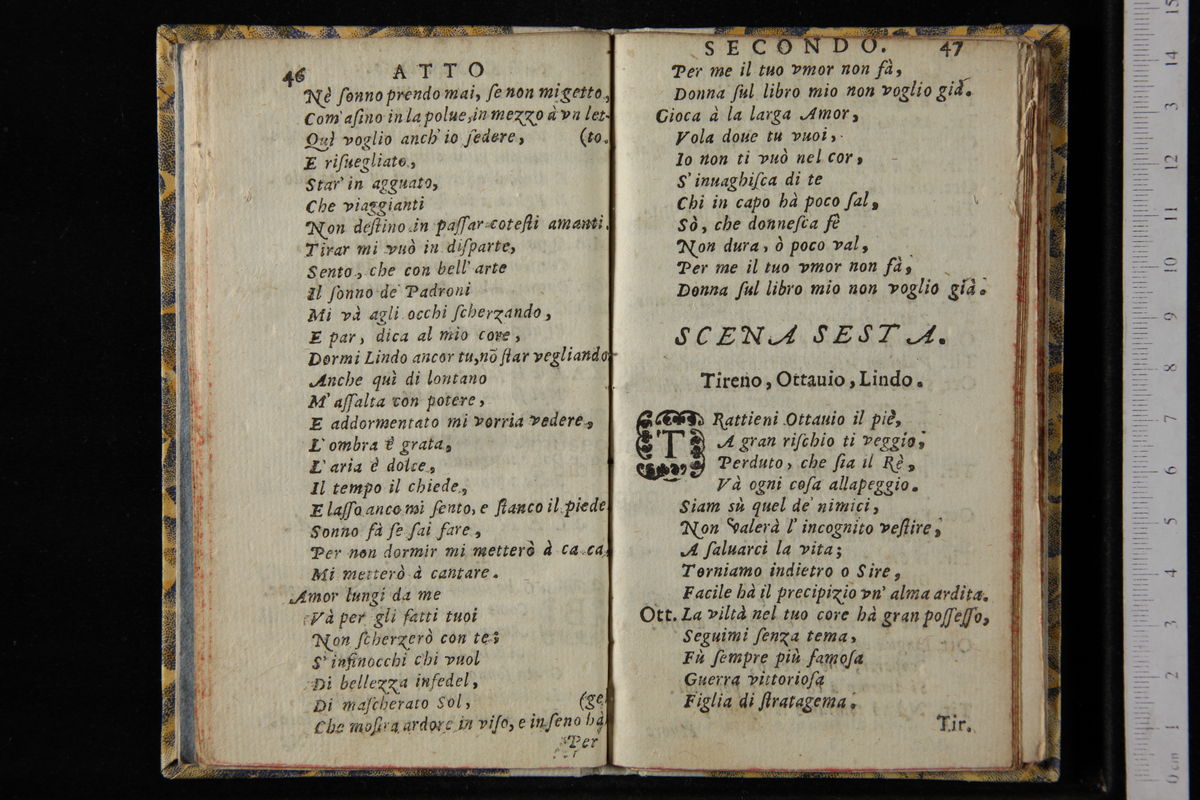 46 ATTO
Nè ſonno prendo mai, ſe non mi getto,
Com' aſino in la polue, in mezzo à vn let-
Quì voglio anch' io ſedere, (to.
E riſuegliato,
Star' in agguato,
Che viaggianti
Non deſtino in paſſar coteſti amanti.
Tirar mi vuò in diſparte,
Sento, che con bell' arte
Il ſonno de' Padroni
Mi và agli occhi ſcherzando,
E par, dica al mio core,
Dormi Lindo ancor tu, nõ ſtar vegliando
Anche quì di lontano
M' aſſalta con potere,
E addormentato mi vorria vedere,
L' ombra è grata,
L' aria è dolce,
Il tempo il chiede,
E laſſo anco mi ſento, e ſtanco il piede
Sonno fà ſe ſai fare,
Per non dormir mi metterò à ca ca,
Mi metterò à cantare.
Amor lungi da me
Và per gli fatti tuoi
Non ſcherzerò con te;
S' infinocchi chi vuol
Di bellezza infedel,
Di maſcherato Sol, (ge
Che moſtra ardore in viſo, e in ſeno hà
Per
SECONDO. 47
Per me il tuo vmor non fà,
Donna ſul libro mio non voglio già.
Gioca à la larga Amor,
Vola doue tu vuoi,
Io non ti vuò nel cor,
S' inuaghiſca di te
Chi in capo hà poco ſal,
Sò, che donneſca fè
Non dura, ò poco val,
Per me il tuo vmor non fà,
Donna ſul libro mio non voglio già.
SCENA SESTA.
Tireno, Ottauio, Lindo.
TRattieni Ottauio il piè,
A gran riſchio ti veggio,
Perduto, che ſia il Rè,
Và ogni coſa allapeggio.
Siam sù quel de' nimici,
Non valerà l' incognito veſtire,
A ſaluarci la vita;
Torniamo indietro o Sire,
Facile hà il precipizio vn' alma ardita.
Ott. La viltà nel tuo core hà gran poſſeſſo,
Seguimi ſenza tema,
Fù ſempre più famoſa
Guerra vittorioſa
Figlia di ſtratagema.
Tir.
0 cm 1 2 3 4 5 6 7 8 9 10 11 12 3 14 15